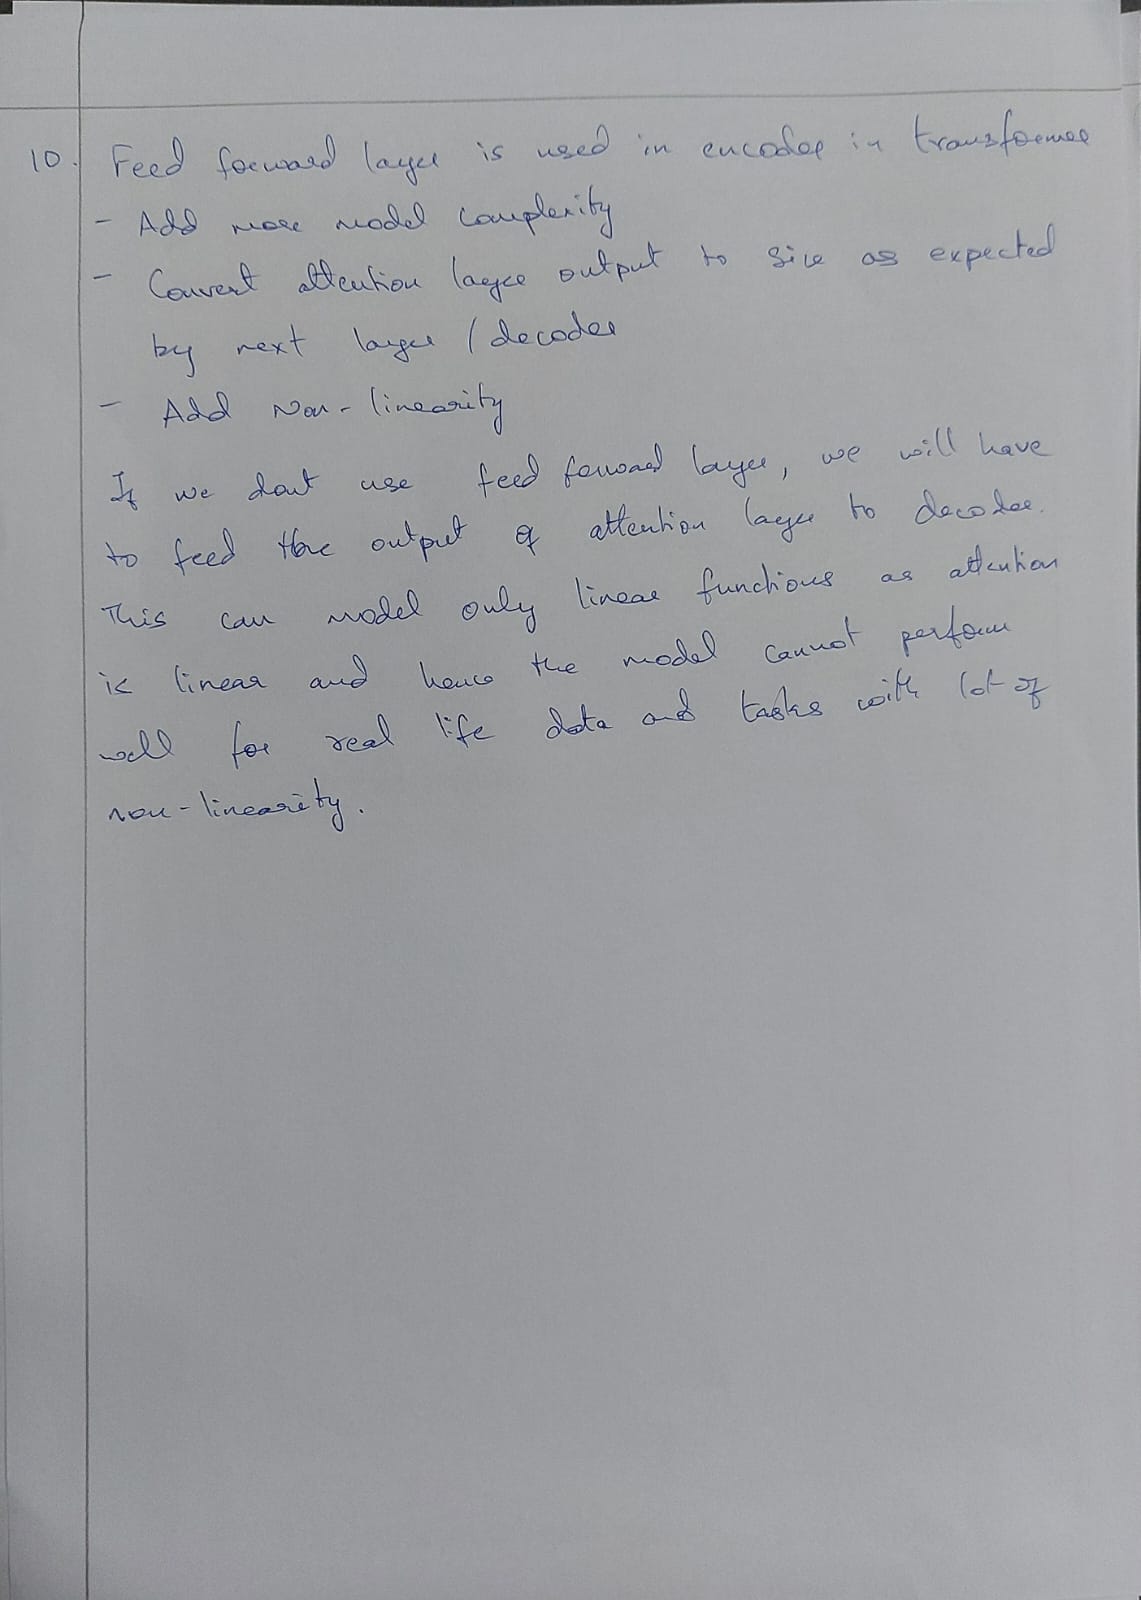 10. Feed forward layer is used in encoder in transformer
- Add more model complexity
- Convert attention layer output to size as expected
by next layer / decoder
- Add Non-linearity
If we dont use feed forward layer, we will have
to feed the output of attention layer to decoder.
This can model only linear functions as attention
is linear and hence the model cannot perform
well for real life data and tasks with lot of
non-linearity.